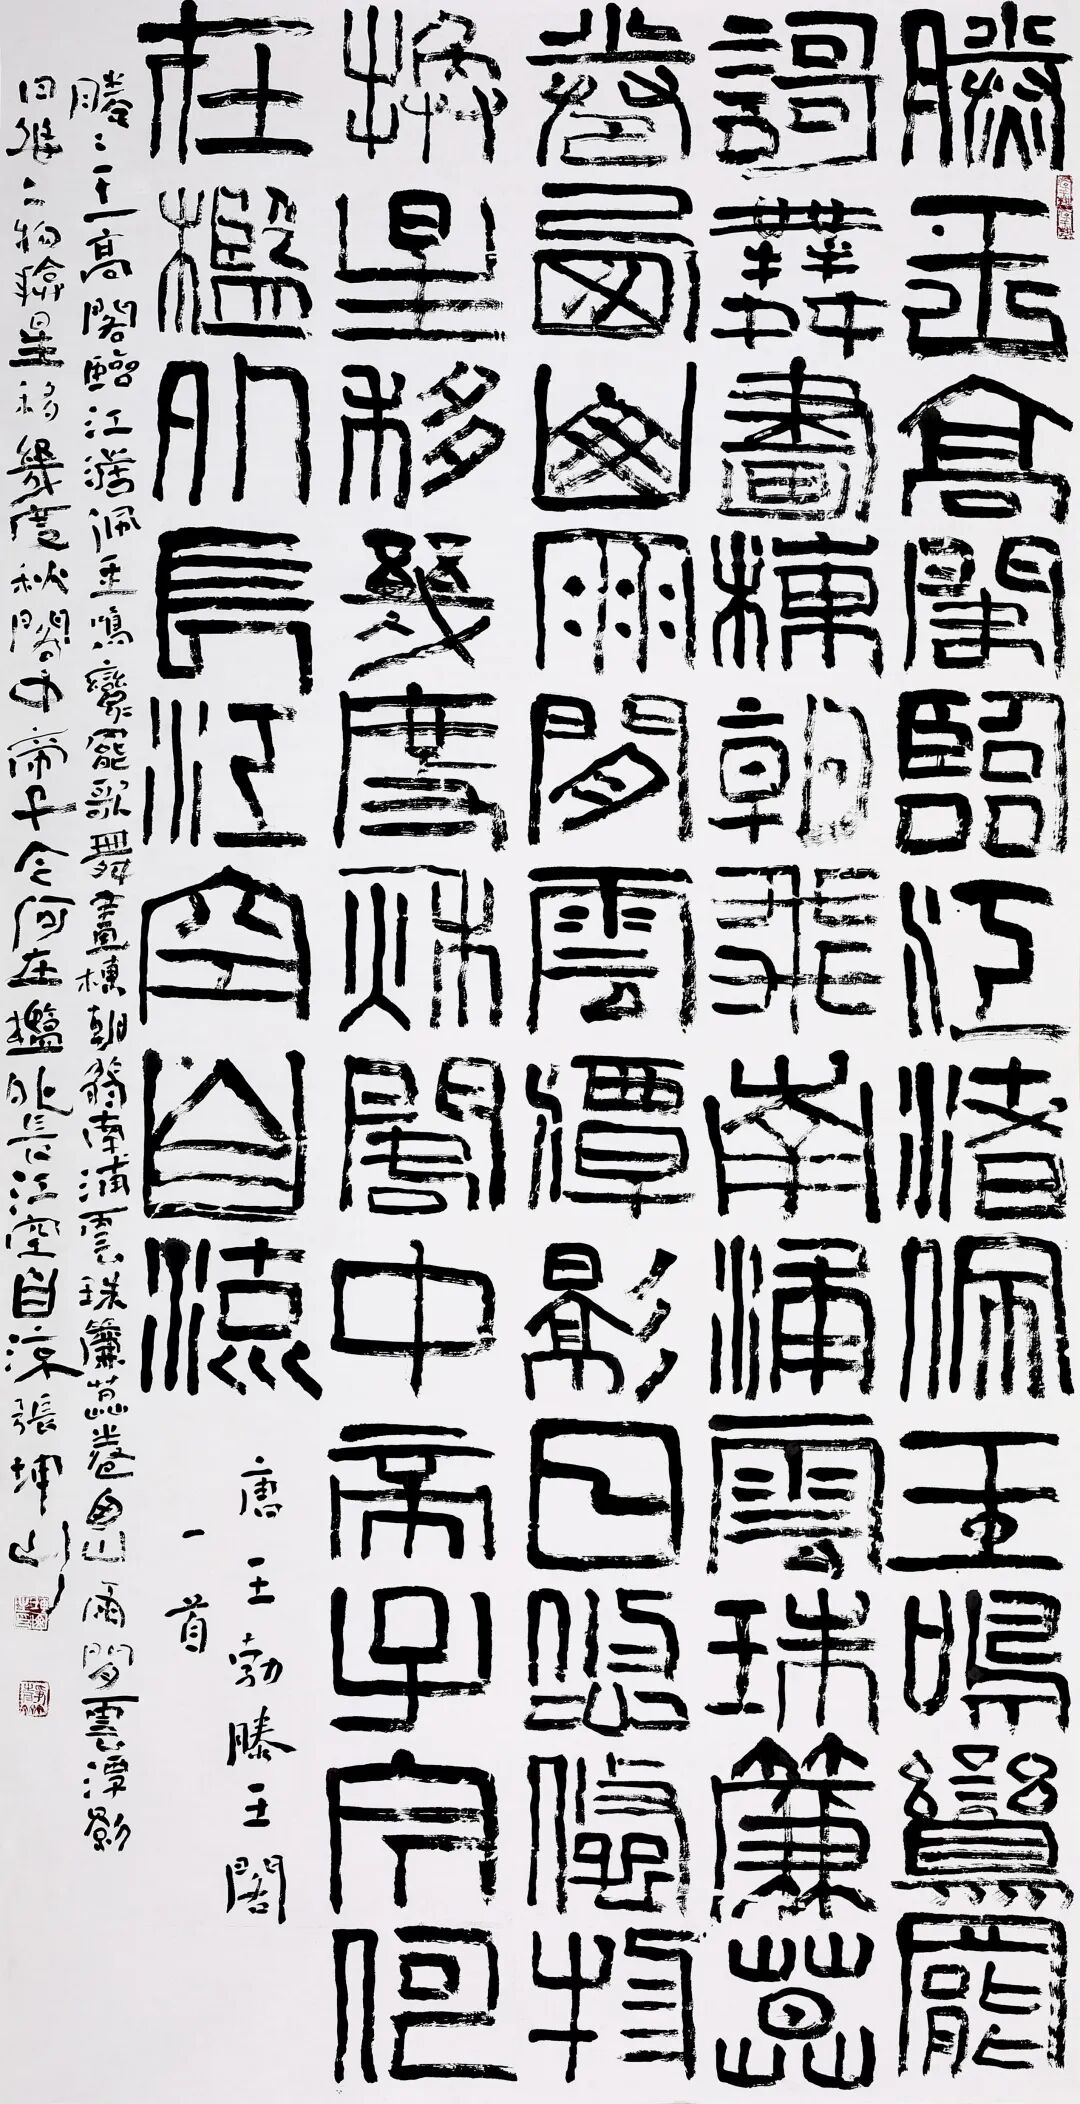 滕王高閣臨江渚佩玉鳴鸞罷
謌舞畫棟朝飛南浦雲珠簾暮
卷西山雨閒雲潭影日悠悠物
換星移幾度秋閣中帝子今何
在檻外長江空自流
唐王勃滕王閣
一首
滕王高閣臨江渚佩玉鳴鸞罷歌舞畫棟朝飛南浦雲珠簾暮卷西山雨閒雲潭影
日悠々物換星移幾度秋閣中帝子今何在檻外長江空自流張坤山